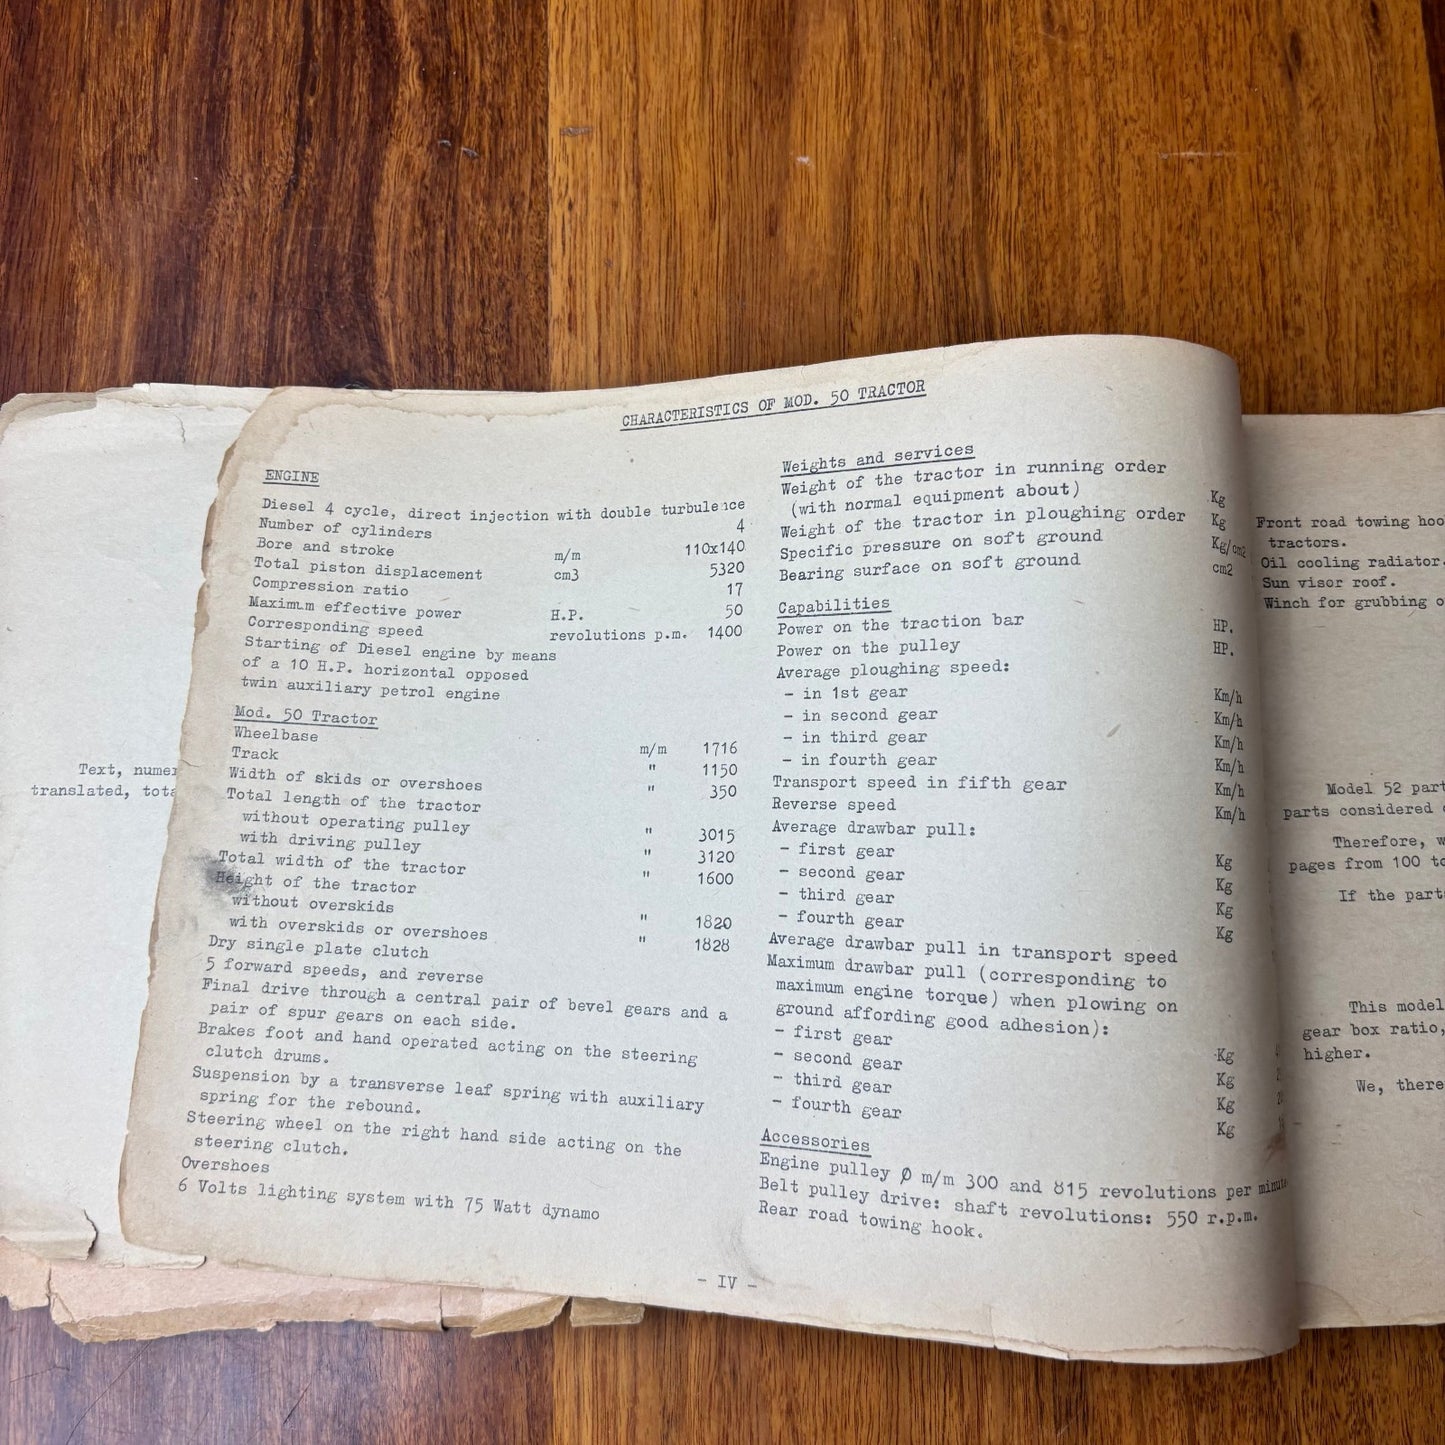 CHARACTERISTICS OF MOD. 50 TRACTOR
ENGINE
Diesel 4 cycle, direct injection with double turbulence
Number of cylinders 4
Bore and stroke m/m 110x140
Total piston displacement cm3 5320
Compression ratio 17
Maximum effective power H.P. 50
Corresponding speed revolutions p.m. 1400
Starting of Diesel engine by means
of a 10 H.P. horizontal opposed
twin auxiliary petrol engine
Mod. 50 Tractor
Wheelbase m/m 1716
Track " 1150
Width of skids or overshoes " 350
Total length of the tractor
without operating pulley " 3015
with driving pulley " 3120
Total width of the tractor " 1600
Height of the tractor
without overskids " 1820
with overskids or overshoes " 1828
Dry single plate clutch
5 forward speeds, and reverse
Final drive through a central pair of bevel gears and a
pair of spur gears on each side.
Brakes foot and hand operated acting on the steering
clutch drums.
Suspension by a transverse leaf spring with auxiliary
spring for the rebound.
Steering wheel on the right hand side acting on the
steering clutch.
Overshoes
6 Volts lighting system with 75 Watt dynamo
Weights and services
Weight of the tractor in running order
(with normal equipment about) Kg
Weight of the tractor in ploughing order Kg
Specific pressure on soft ground Kg/cm2
Bearing surface on soft ground cm2
Capabilities
Power on the traction bar HP.
Power on the pulley HP.
Average ploughing speed:
- in 1st gear Km/h
- in second gear Km/h
- in third gear Km/h
- in fourth gear Km/h
Transport speed in fifth gear Km/h
Reverse speed Km/h
Average drawbar pull:
- first gear Kg
- second gear Kg
- third gear Kg
- fourth gear Kg
Average drawbar pull in transport speed
Maximum drawbar pull (corresponding to
maximum engine torque) when plowing on
ground affording good adhesion):
- first gear Kg
- second gear Kg
- third gear Kg
- fourth gear Kg
Accessories
Engine pulley Ø m/m 300 and 815 revolutions per minute
Belt pulley drive: shaft revolutions: 550 r.p.m.
Rear road towing hook.
- IV -
Text, numer
translated, tota
Front road towing hoo
tractors.
Oil cooling radiator.
Sun visor roof.
Winch for grubbing o
Model 52 part
parts considered
Therefore, w
pages from 100 to
If the parts
This model
gear box ratio,
higher.
We, there